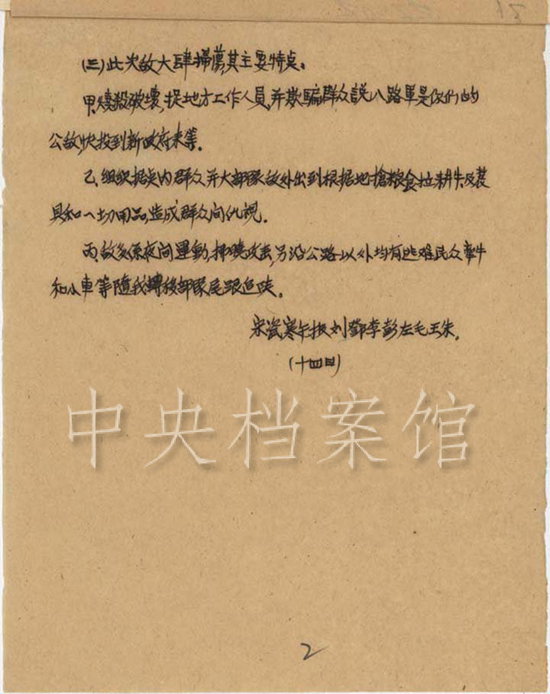 (三)此次敌大肆掃蕩其主要特点。
甲.燒殺破壞,捉地方工作人員,并欺騙群众說八路軍是你们的
公敌,快投到新政府来等。
乙.組织据点内群众并大部隊敌外出到根据地搶粮食拉耕牛及農
具和一切用品,造成群众间仇視。
丙.敌多係夜间運動,掃境攻击,另沿公路以外均有逃难民众牽牛
和小車等隨我轉移部隊尾跟追随。
宋.寒午报刘鄧李彭左毛王朱。
(十四日)
中央档案馆
2